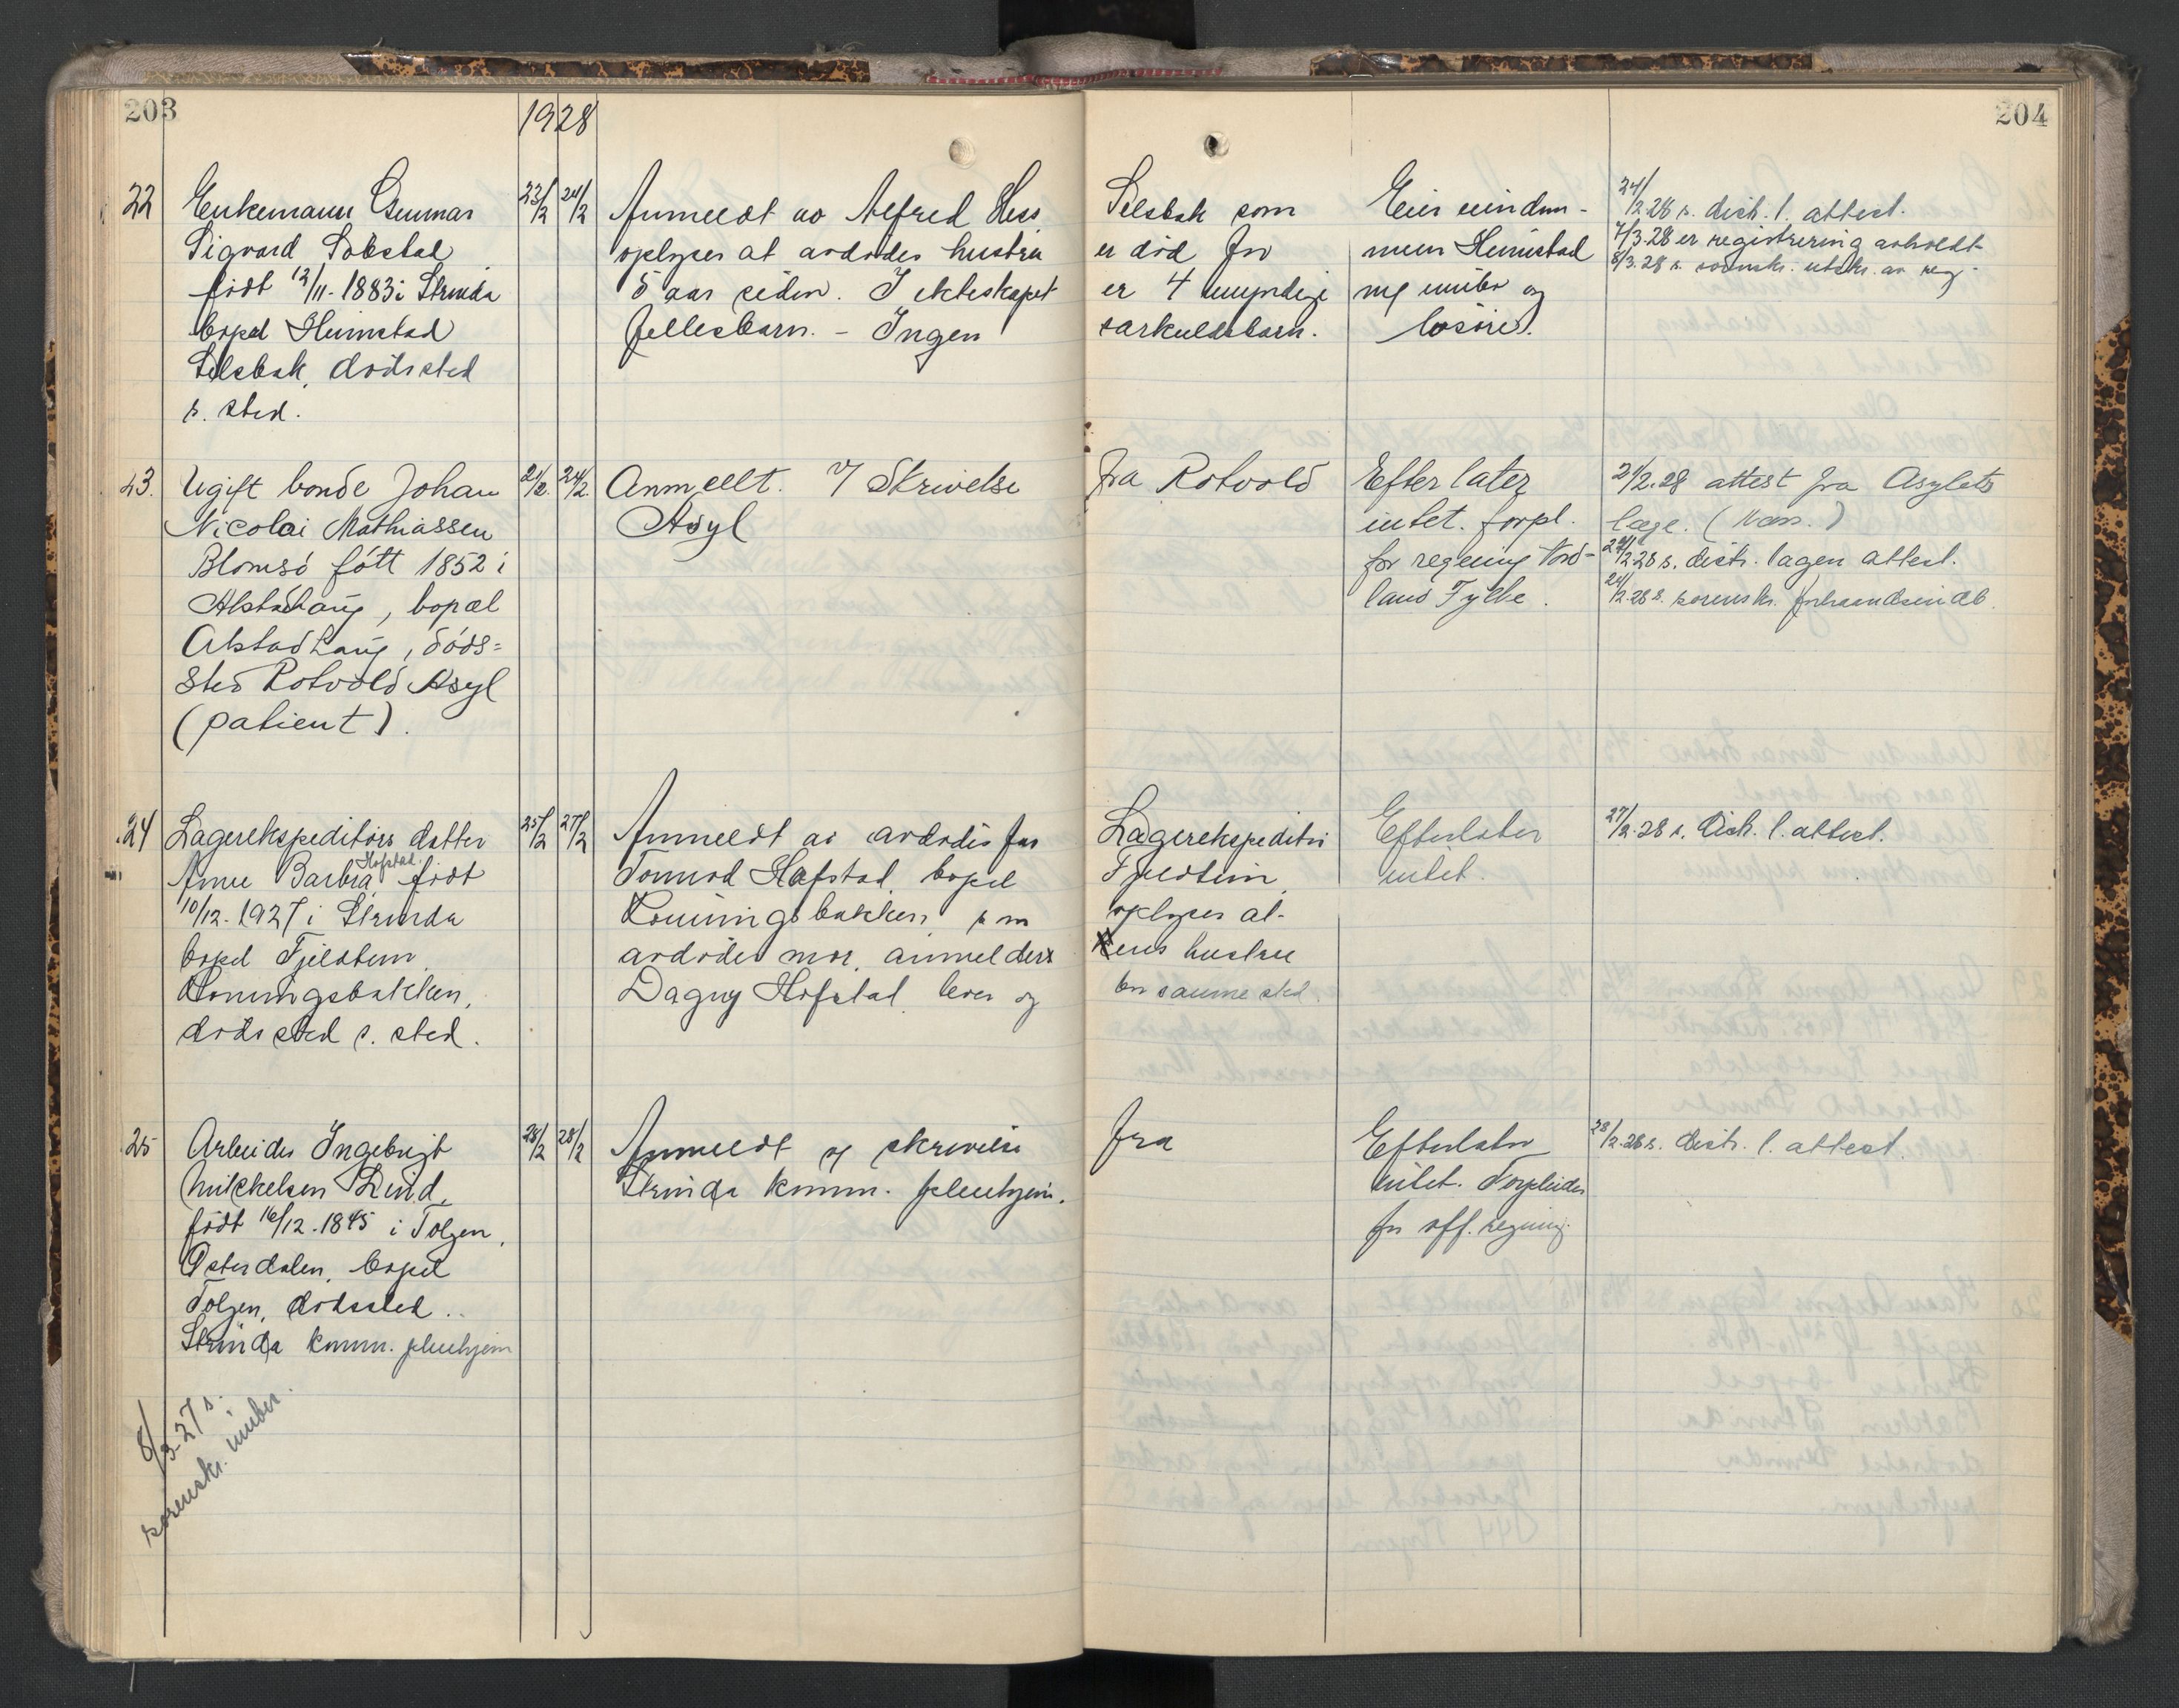 203
1928
204
22
Enkemann Gunnar
Sigvard Solstad
født 12/11-1883 i Strinda
bopel Heimstad
Selsbak, dødssted
s. sted.
23/2 24/2
Anmeldt av Alfred Hess
oplyser at avdødes hustru
5 aar siden. I ekteskapet
fellesbarn. - Ingen
Selsbak som
er død for
er 4 umyndige
særkuldsbarn.
Eier eiendom-
men Heimstad
m/ innbo og
løsøre.
24/2.28 s. distr. l. attest.
7/3.28 er registrering avholdt
8/3.28 s. sorenskr. utskr. av reg.
23.
Ugift bonde Johan
Nicolai Mathiassen
Blomsö fött 1852 i
Alstahaug, bopæl
Alstadhaug, döds=
sted Rotvold Asyl
(patient).
21/2. 24/2.
Anmeldt. v/ Skrivelse
Asyl
fra Rotvold
Efterlater
intet. forpl.
for regning Nord-
land Fylke.
21/2.28 attest fra Asylets
læge.
24/2 28 s. distr. lægen attest.
24/2.28 s. sorenskr.
24
Lagerekspeditørs datter
Anne Barbra Hofstad født
10/12-1927 i Strinda
bopel Fjeldheim
Loiningsbakken,
dødssted s. sted.
25/2 27/2
Anmeldt av avdødes far
Tormod Hofstad, bopel
Loiningsbakken, som
avdødes mor, anmelders
Dagny Hofstad lever og
Lagerekspeditør
Fjeldheim,
oplyser at
hustru
bor samme sted.
Efterlater
intet.
27/2.28 s. distr. l. attest.
25
Arbeider Ingebrigt
Mikkelsen Lind,
født 16/12-1845 i Tolgen,
Østerdalen, bopel
Tolgen, dødssted
Strinda komm. pleiehjem
28/2 28/2
Anmeldt v/ skrivelse
Strinda komm. pleiehjem.
fra
Efterlater
intet. Forpleides
for off. regning.
28/2.28 s. distr. l. attest.
8/3-27 s.
sorenskr. innber.